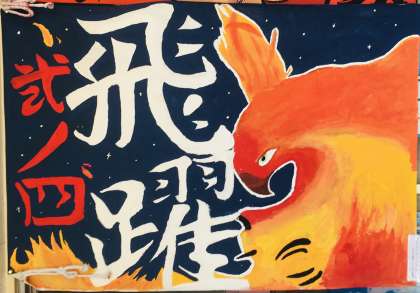 飛躍
弐ノ四